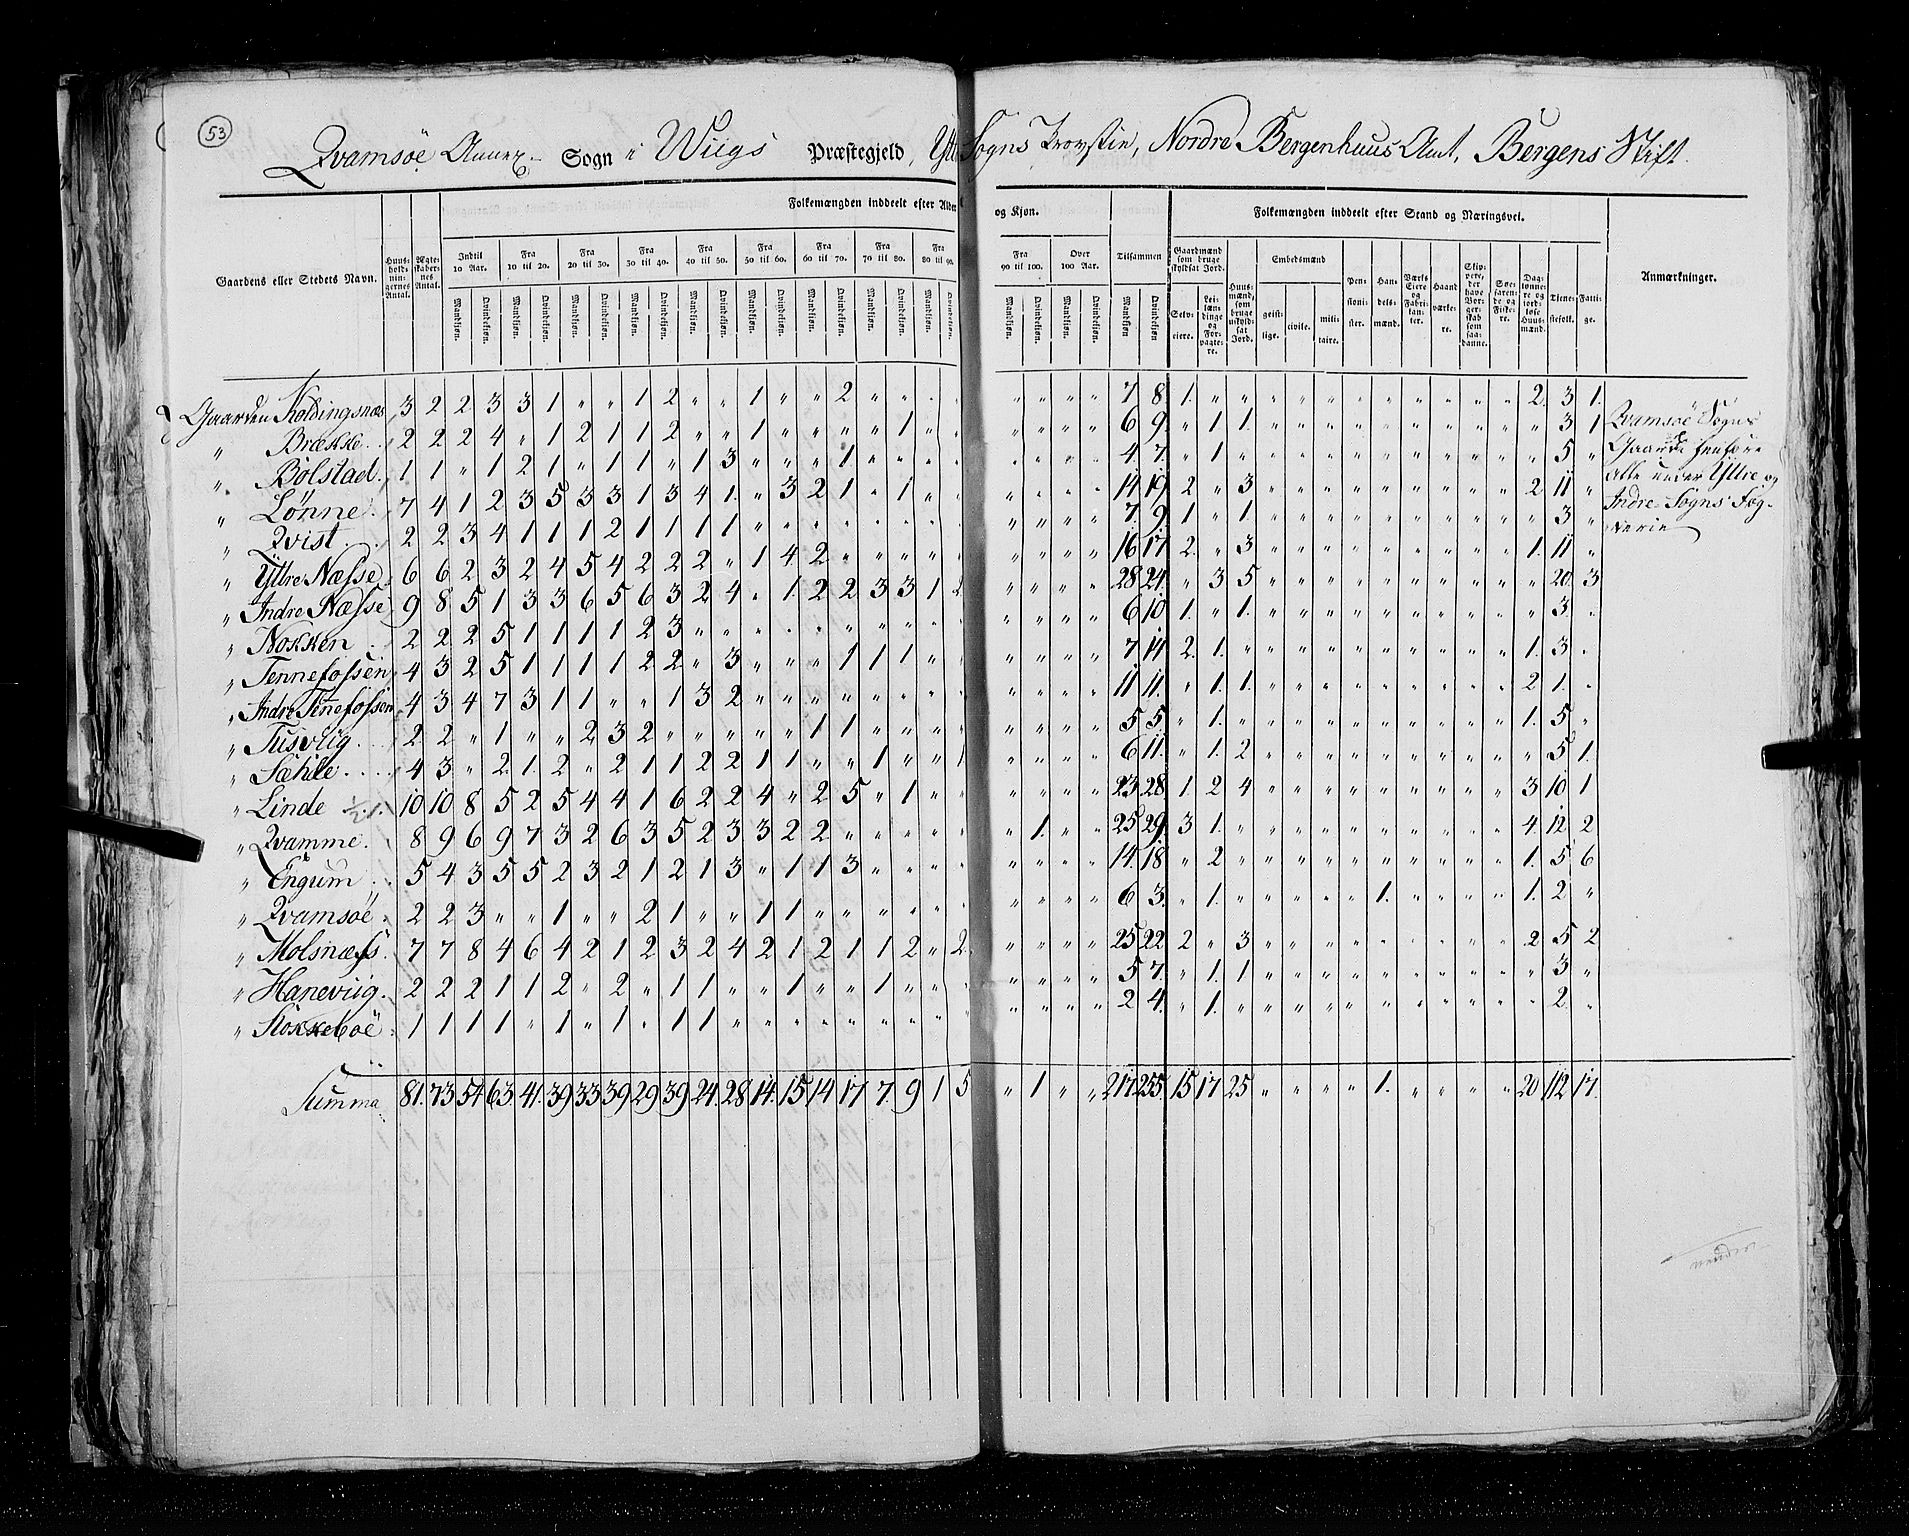 53
Qvamsøe Annex Sogn i Wiigs Præstegjeld, Yttre Sogns Provstie, Nordre Bergenhuus Amt, Bergens Stift.
Gaardens eller Stedets Navn. Huusholdningernes Antal. Ægteskabernes Antal. Folkemængden inddeelt efter Alder og Kjøn. Tilsammen Folkemængden inddeelt efter Stand og Næringsvei. Anmærkninger.
Indtil 10 Aar. Fra 10 til 20. Fra 20 til 30. Fra 30 til 40. Fra 40 til 50. Fra 50 til 60. Fra 60 til 70. Fra 70 til 80. Fra 80 til 90. Fra 90 til 100. Over 100 Aar.
Mandkjøn. Qvindekjøn. Mandkjøn. Qvindekjøn. Mandkjøn. Qvindekjøn. Mandkjøn. Qvindekjøn. Mandkjøn. Qvindekjøn. Mandkjøn. Qvindekjøn. Mandkjøn. Qvindekjøn. Mandkjøn. Qvindekjøn. Mandkjøn. Qvindekjøn. Mandkjøn. Qvindekjøn. Mandkjøn. Qvindekjøn. Mandkjøn. Qvindekjøn.
Gaardmænd som bruge skyldsat Jord. Selveiere. Leilændinge og Forpagtere. Huusmænd, som bruge uskyldsat Jord. Embedsmænd geistlige. civile. militaire. Pensionister. Handelsmænd. Værks Eiere og Fabrikanter. Haandværkere. Skippere, der have Borgerskab som saadanne. Søefarende og Fiskere. Daglønnere og jordløse Huusmænd. Tienestefolk. Fattige.
Gaarden Koldingsnæs 3 2 2 3 3 1 " " 1 2 " " 1 " " 2 " " " " " " " " 7 8 1. " " " " " " " " " " " 2. 3 1.
" Brække 2 2 2 4 " 1 2 1 1 2 " " 1 " " " " 1 " " " " " " 6 9. " 1 1. " " " " " " " " " " 3 1
" Bolstad 1 1 " 1 2 1 " 1 1 " 1 3 " " " 1 " " " " " " " " 4 7. " 1 " " " " " " " " " " " 5 "
" Lønne 7 4 1 2 3 5 3 3 1 3 4 1 " 3 2 1 " 1 " " " " " " 14 19. 2 " 3 " " " " " " " " " 2 11 "
" Qvist 2 2 3 4 1 1 1 2 1 1 1 1 " " " " " " " " " " " " 7. 9. 1 " 1. " " " " " " " " " " 3 "
" Yttre Næsse 6 6 2 3 2 4 5 4 2 2 2 " 1 4 2 " " " " " " " " " 16 17 2. " 3 " " " " " " " " " 1. 11 "
" Indre Næsse 9 8 5 1 3 3 6 5 6 3 2 4 " 1 2 2 3 3 1 2 " " " " 28 24. " 3 5 " " " " " " " " " " 20. 3
" Nokken 2 2 2 5 1 1 1 1 2 3 " " " " " " " " " " " " " " 6 10 1. " 1. " " " " " " " " " " 3. "
" Tennefossen 4 3 2 5 1 1 1 1 2 2 " 3 " " " 1 1 1 " " " " " " 7 14 2. 1. " " " " " " " " " " 1. 3 "
" Indre Tenefossen 4 3 4 7 3 1 1 " " 1 3 2 " " " " " " " " " " " " 11 11. " 1. 1. " " " " " " " " " 2 1. "
" Tusviig 2 2 " 1 " " 2 3 2 " " " " " 1 1 " " " " " " " " 5 5. " 1. " " " " " " " " " " 1. 5 "
" Sæhle 4 3 " 2 1 2 " 2 1 1 2 2 1 1 " " 1 " " 1 " " " " 6 11. " 1. 2 " " " " " " " " " " 5 1.
" Linde 10 10 8 5 2 5 4 4 1 6 2 2 4 " 2 5 " 1 " " " " " " 23 28 1. 2 4 " " " " " " " " " 3 10 1
" Qvamme 8 9 6 9 7 3 2 6 3 5 2 3 3 2 2 " " " " " " 1. " " 25 29. 3 1. " " " " " " " " " " 4. 12. 2
" Engum 5 4 3 5 5 2 3 2 1 2 1 3 " 1 1 3 " " " " " " " " 14. 18 " 2 " " " " " " " " " " 1. 5 6
" Qvamsøe 2 2 3 " " 1 " " 2 1 " " 1 1 " " " " " " " " " " 6 3. " 1. " " " " " 1. " " " " 1. 2 "
" Molsnæss 7 7 8 4 6 4 2 1 2 3 2 4 2 1 2 1 1 2 " 2 " " " " 25 22 2 " 3 " " " " " " " " " 2 5 2
" Haneviig 2 2 2 1 1 2 " 2 " 1 1 " " 1 " " 1 " " " " " " " 5 7. " 1. 1 " " " " " " " " " " 3 "
" Stokkeboe 1 1 1 1 " 1 " 1 " 1 1 " " " " " " " " " " " " " 2 4. " 1. " " " " " " " " " " " 2. "
Qvamsøe Sogns
Gaarde henføre
Alle under Yttre og
Indre-Sogns Fog-
derie
Summa 81. 73 54 63 41. 39 33 39 29 39 24. 28 14. 15 14 17 7. 9 1 5 " 1 " " 217 255. 15 17 25 " " " " 1. " " " " 20 112 17.